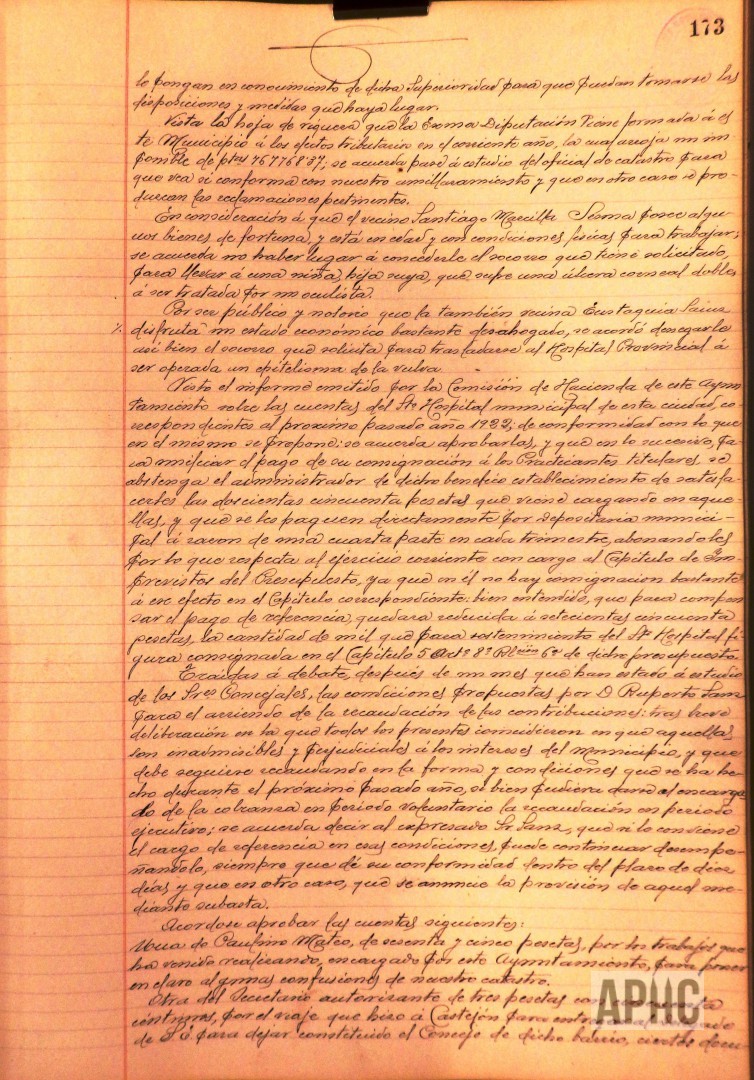 173
lo pongan en conocimiento de dicha Superioridad para que puedan tomarse las
disposiciones y medidas que haya lugar.
Vista la hoja de riqueza que la Exma Diputación tiene formada á es
te Municipio á los efectos tributarios en el corriente año, la cual arroja un im-
ponible de ptas 767768'37; se acuerda pase á estudio del oficial de catastro para
que vea si conforma con nuestro amillaramiento y que en otro caso se pro-
duzcan las reclamaciones pertinentes.
En consideración á que el vecino Santiago Marcilla Sesma posee algu-
nos bienes de fortuna, y está en edad y con condiciones físicas para trabajar;
se acuerda no haber lugar á concederle el socorro que tiene solicitado,
para llevar á una niña, hija suya, que sufre una úlcera corneal doble,
á ser tratada por un oculista.
Por ser público y notorio que la también vecina Eustaquia Sainz
disfruta un estado económico bastante desahogado, se acordó denegarle
así bien el socorro que solicita para trasladarse al Hospital Provincial á
ser operada un epitelioma de la vulva.
Visto el informe emitido por la Comisión de Hacienda de este Ayun-
tamiento sobre las cuentas del Sto Hospital municipal de esta ciudad, co-
rrespondientes al próximo pasado año 1922; de conformidad con lo que
en el mismo se propone; se acuerda aprobarlas, y que en lo sucesivo, pa-
ra unificar el pago de su consignación á los Practicantes titulares se
abstenga el administrador de dicho benéfico establecimiento de satisfa-
cerles las doscientas cincuenta pesetas que viene cargando en aque-
llas, y que se les paguen directamente por Depositaria munici-
pal á razon de una cuarta parte en cada trimestre, abonandoles
por lo que respecta al ejercicio corriente con cargo al Capítulo de Im-
previstos del Presupuesto, ya que en él no hay consignacion bastante
á ese efecto en el Capítulo correspondiente: bien entendido, que para compen
sar el pago de referencia, quedara reducida á setecientas cincuenta
pesetas, la cantidad de mil que para sostenimiento del Sto Hospital fi
gura consignada en el Capítulo 5 Arto 8º 6º de dicho presupuesto.
Traidas á debate, después de un mes que han estado á estudio
de los Sres Concejales, las condiciones propuestas por D. Ruperto Sanz
para el arriendo de la recaudación de las contribuciones: tras breve
deliberación en la que todos los presentes coincidieron en que aquellas
son inadmisibles y perjudiciales á los intereses del Municipio, y que
debe seguirse recaudando en la forma y condiciones que se ha he
cho durante el próximo pasado año, si bien pudiera darse al encarga
do de la cobranza en período voluntario la recaudación en período
ejecutivo; se acuerda decir al expresado Sr Sanz, que si le conviene
el cargo de referencia en esas condiciones, puede continuar desempe-
ñandolo, siempre que dé su conformidad dentro del plazo de diez
días y que en otro caso, que se anuncie la provisión de aquel me-
diante subasta.
Acordose aprobar las cuentas siguientes:
Una de Paulino Mateo, de sesenta y cinco pesetas, por los trabajos que
ha venido realizando, encargado por este Ayuntamiento, para poner
en claro algunas confusiones de nuestro catastro.
Otra del Secretario autorizante de tres pesetas con
céntimos, por el viaje que hizo á Castejón para
de S.E. para dejar constituido el Concejo de dicho barrio, ciertos docu-
APHC